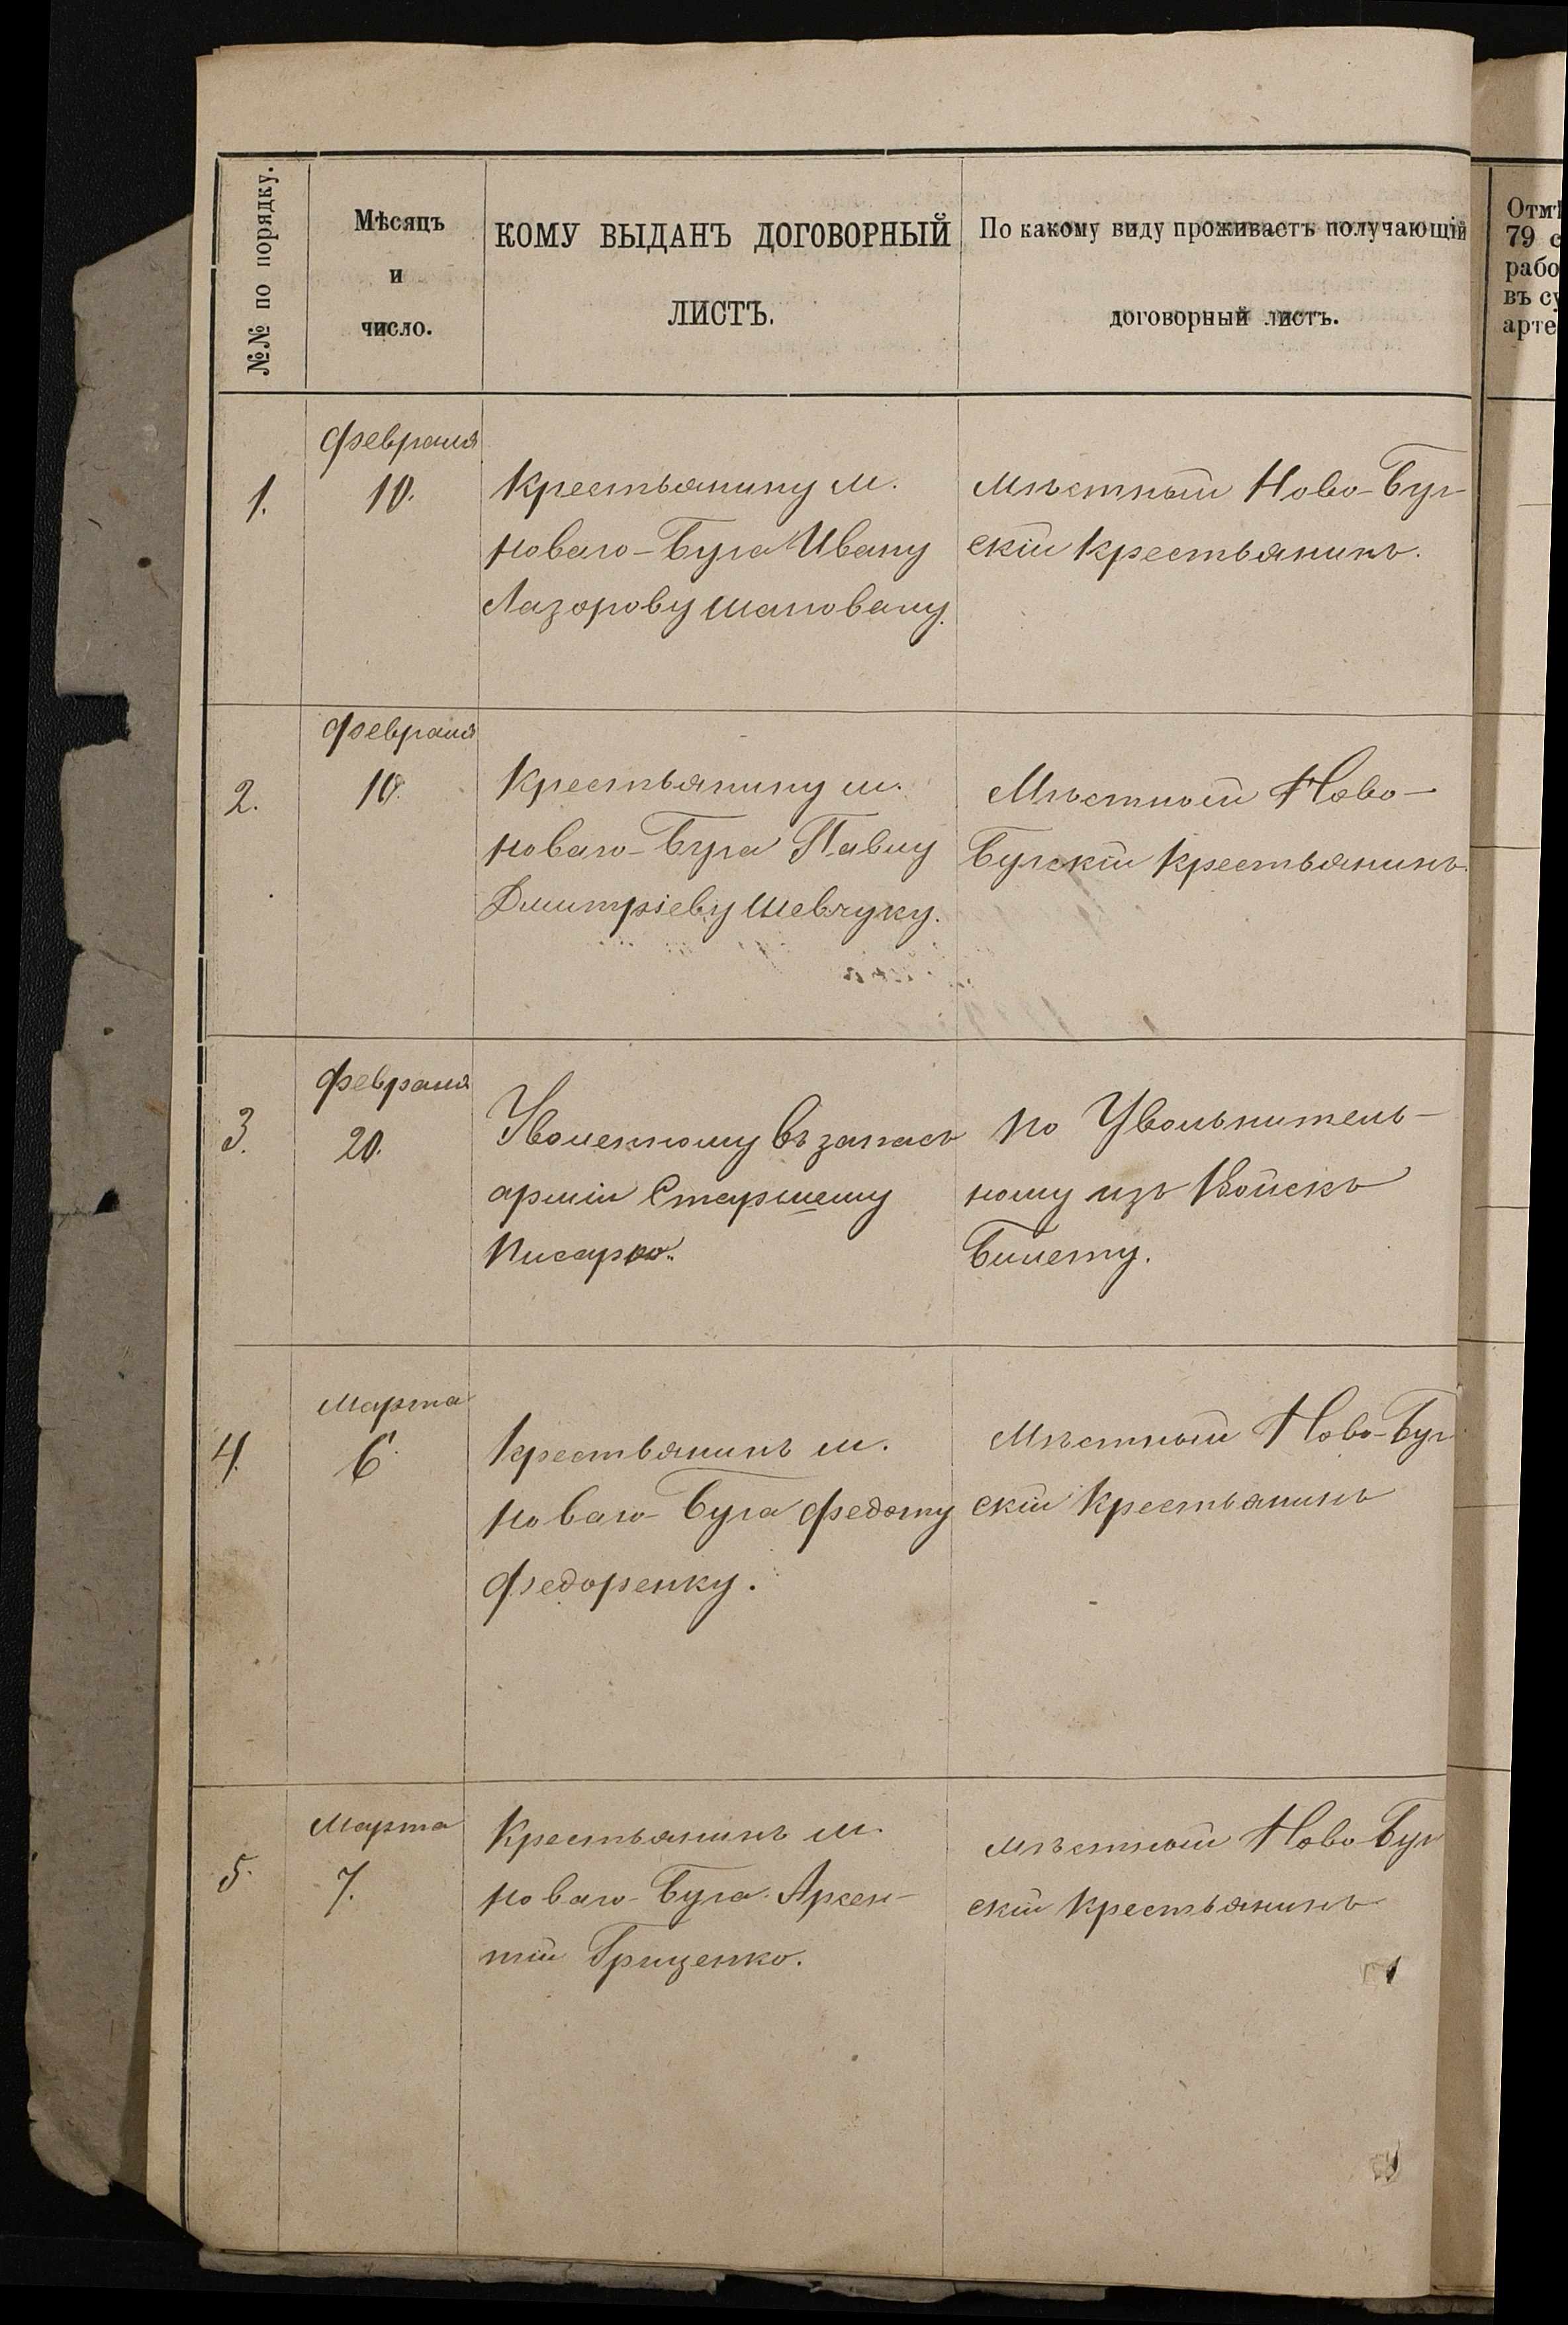 №№ по порядку.
Мѣсяцъ
и
число.
КОМУ ВЫДАНЪ ДОГОВОРНЫЙ
ЛИСТЪ.
По какому виду проживаетъ получающій
договорный листъ.
Отмѣ
79 с
рабо
въ су
арте
1.
Февраля
10.
Крестьянину м.
Новаго-Буга Ивану
Лазорову Шаповалу.
Мѣстный Ново-Буг
скій Крестьянинъ.
2.
Февраля
10.
Крестьянину м.
Новаго-Буга Павлу
Дмитріеву Шевчуку.
Мѣстный Ново-
Бугскій Крестьянинъ.
3.
Февраля
20.
Уволенному въ запасъ
арміи Старшему
Писарю.
По Увольнитель-
ному изъ Войскъ
Билету.
4.
Марта
6.
Крестьянинъ м.
Новаго-Буга Федоту
Федоренку.
Мѣстный Ново-Буг
скій Крестьянинъ
5.
Марта
7.
Крестьянинъ м.
Новаго-Буга Арсен-
тій Гриценко.
Мѣстный Ново Буг
скій Крестьянинъ